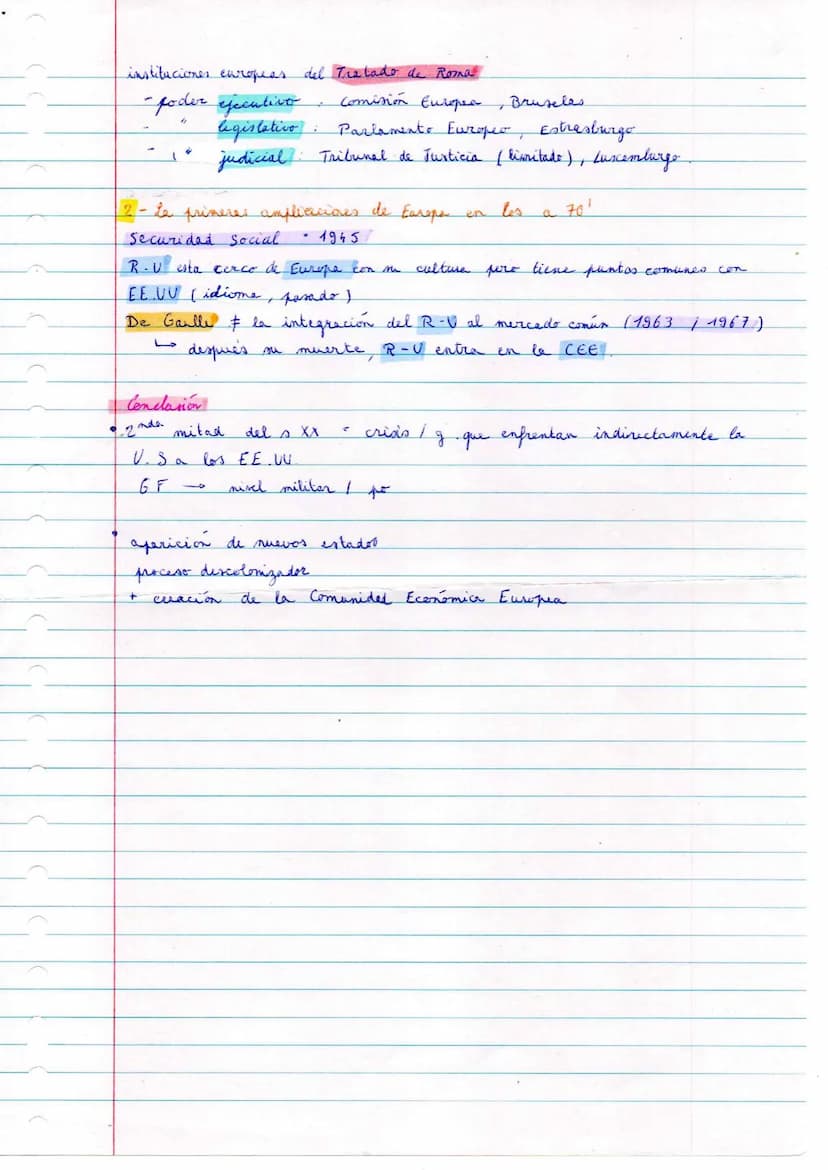 instituciones europeas del Tratado de Roma
- poder ejecutivo : Comisión Europea , Bruselas
- " legislativo : Parlamento Europeo, Estrasburgo
- " judicial : Tribunal de Justicia (limitado), Luxemburgo.
2 - La primeras ampliaciones de Europa en los a 70'
Securidad Social : 1945
R.U esta cerco de Europa con su cultura pero tiene puntos comunes con
EE.UU (idioma, pasado)
De Gaulle ≠ la integración del R-U al mercado común (1963 / 1967)
↳ después su muerte, R-U entra en la CEE.
Conclusión
• 2nda mitad del s XX = crisis / g. que enfrentan indirectamente la
U.S a los EE.UU
GF → nivel militar / po
• aparición de nuevos estados
proceso descolonizador
+ creación de la Comunidad Económica Europea